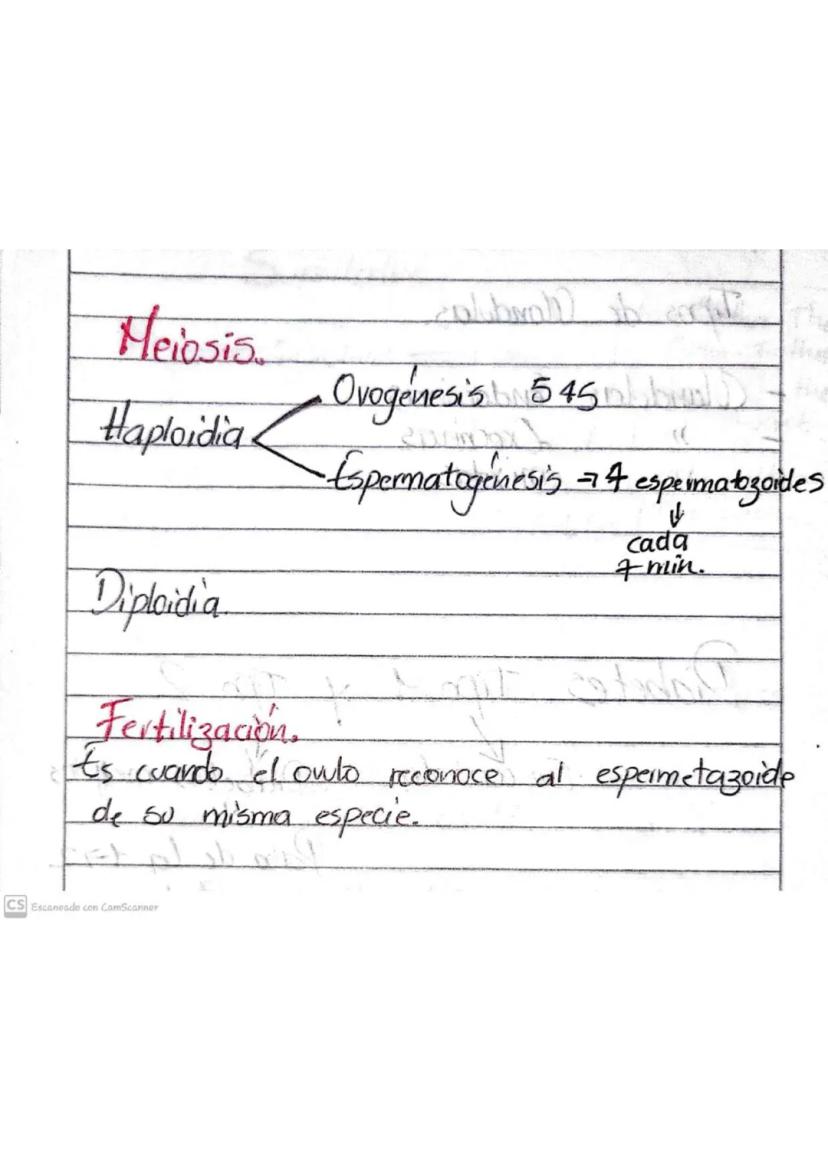 Meiosis.
Ovogénesis 545
Haploidia
Espermatogénesis → 4 espermatozoides
↓
cada
7 min.
Diploidia.
Fertilización.
Es cuando el ovulo reconoce al espermetazoide
de su misma especie.
CS Escaneado con CamScanner